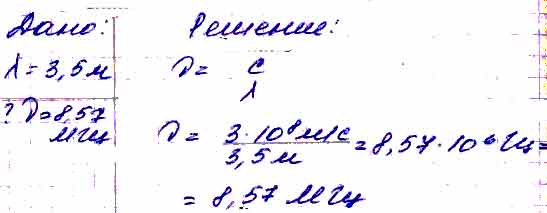 Дано:
λ = 3,5 м
? ν = 8,57
МГц
Решение:
ν = c/λ
ν = 3·10⁸ м/с / 3,5 м = 8,57·10⁶ Гц =
= 8,57 МГц